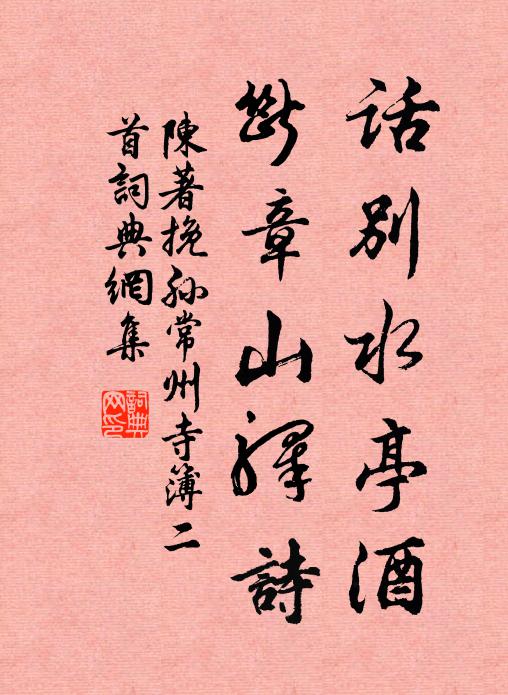 話別水亭酒
斷章山驛詩
陳著挽孙常州寺簿二
首詞典網集
詞典網印